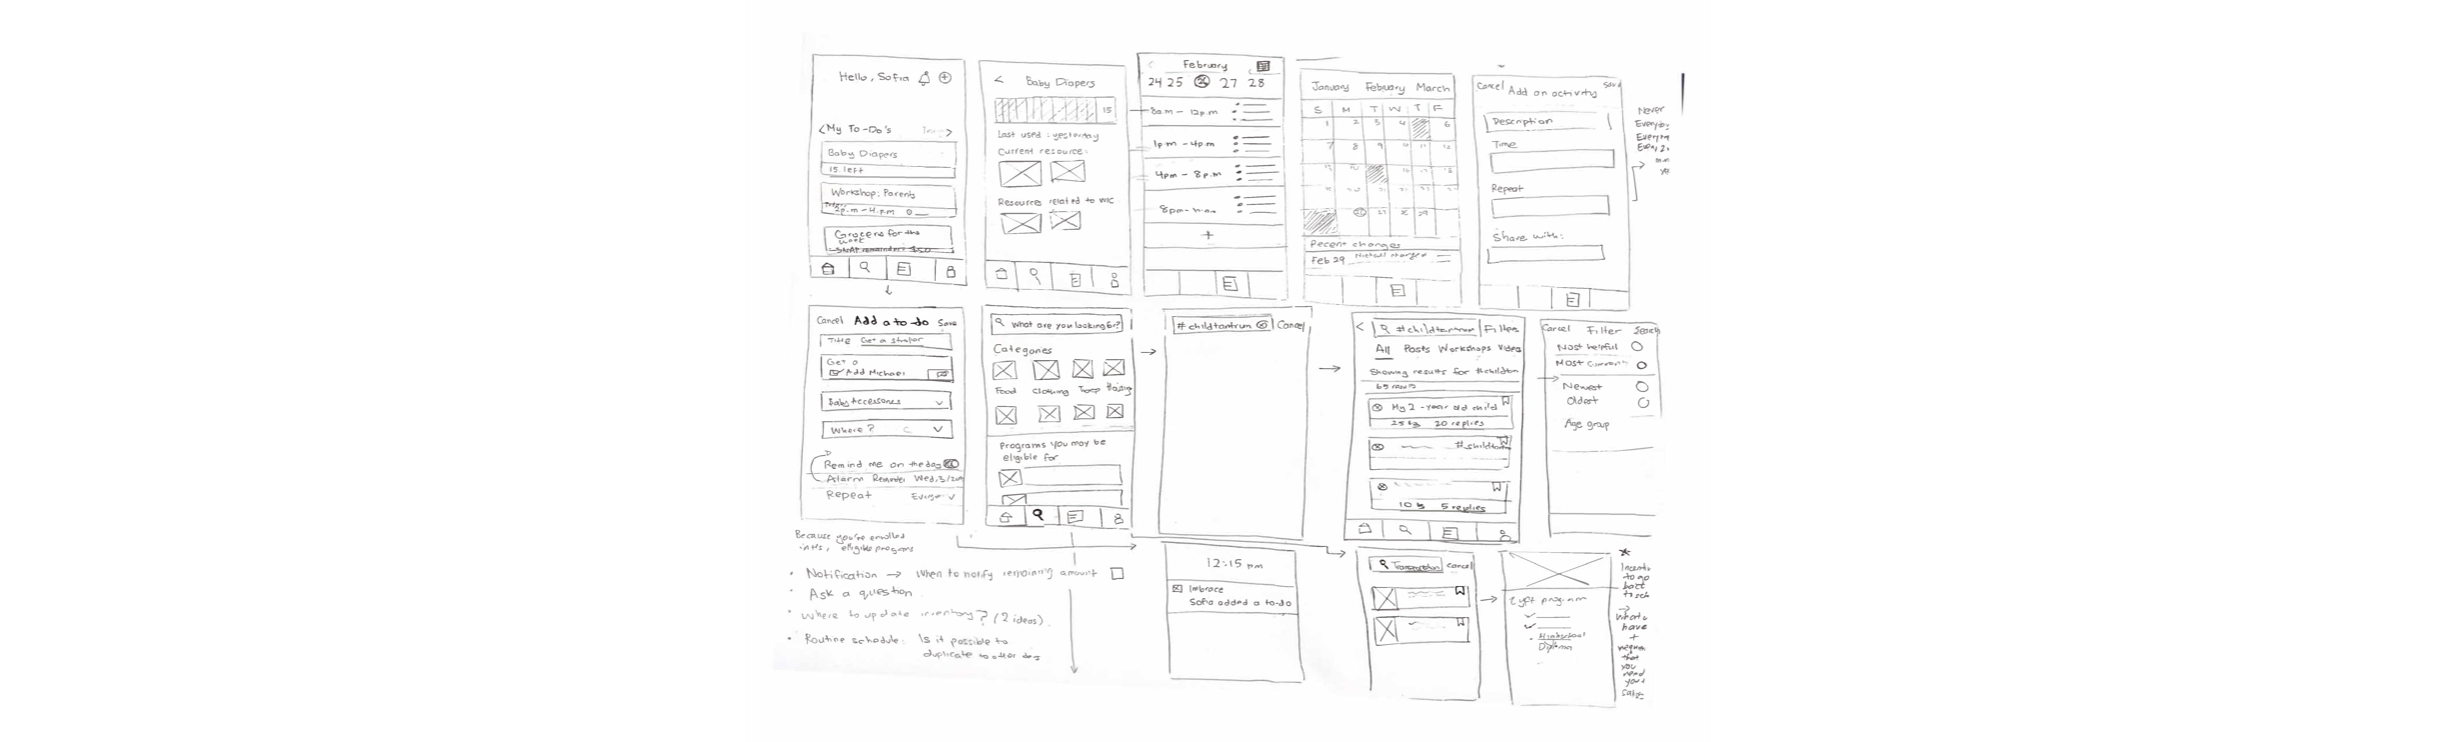 Hello, Sofia
<My To-Do's
Baby Diapers
15 left
Workshop: Parents
2p.m - 4.p.m
Groceries for the
week
SNAP remainder: $50
< Baby Diapers
15
Last used : yesterday
Current resource:
Resources related to WIC
< February
24 25 26 27 28
8a.m - 12p.m
1p.m - 4p.m
4pm - 8p.m
8pm -
+
January February March
S M T W T F
1 2 3 4 6
7 8 9 10 11 12
Recent changes
Feb 29 Michael changed
Cancel Add an activity Save
Description
Time
Repeat
Share with:
Never
Cancel Add a to do Save
Title Get a stroller
Get a
Add Michael
Baby Accessories
Where?
Remind me on the day
Alarm Reminder Wed, 3/
Repeat
What are you looking for?
Categories
Food Clothing
Programs you may be
eligible for
#childtantrum Cancel
< #childtantrum Filters
All Posts Workshops Video
Showing results for #childtan
65 results
My 2-year old child
20 replies
#childtan
5 replies
Cancel Filter Search
Most helpful
Most Current
Newest
Oldest
Age group
Because you're enrolled
in this, eligible programs
• Notification → When to notify remaining amount
• Ask a question
• Where to update inventory? (2 ideas).
• Routine schedule: Is it possible to
duplicate to other days
12:15 pm
Imbrace
Sofia added a to-do
Transportation Cancel
Lyft program
• Highschool
Diploma
*
to go
back
to
have
+
that
you
need